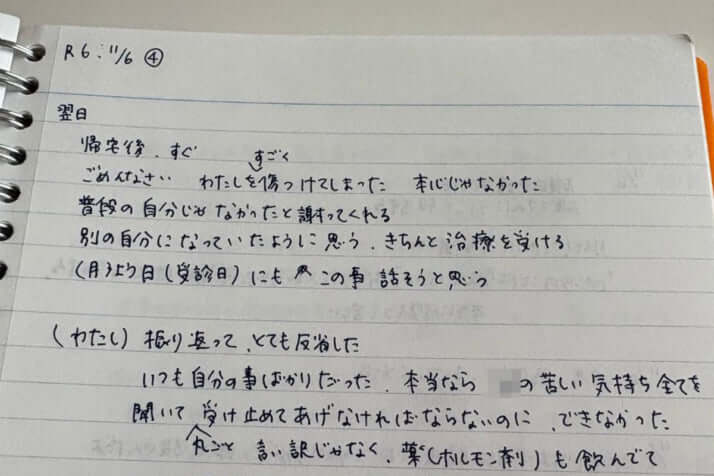 R6.11/6 ④
翌日
帰宅後、すぐ
ごめんなさい わたしをすごく傷つけてしまった 本心じゃなかった
普段の自分じゃなかったと謝ってくれる
別の自分になっていたように思う、きちんと治療を受ける
(月)より日(受診日)にも この事話そうと思う
(わたし) 振り返って、とても反省した
いつも自分の事ばかりだった、本当なら の苦しい気持ち全てを
聞いて丸ごと受け止めてあげなければならないのに、できなかった
言い訳じゃなく、薬(ホルモン剤)も飲んでて